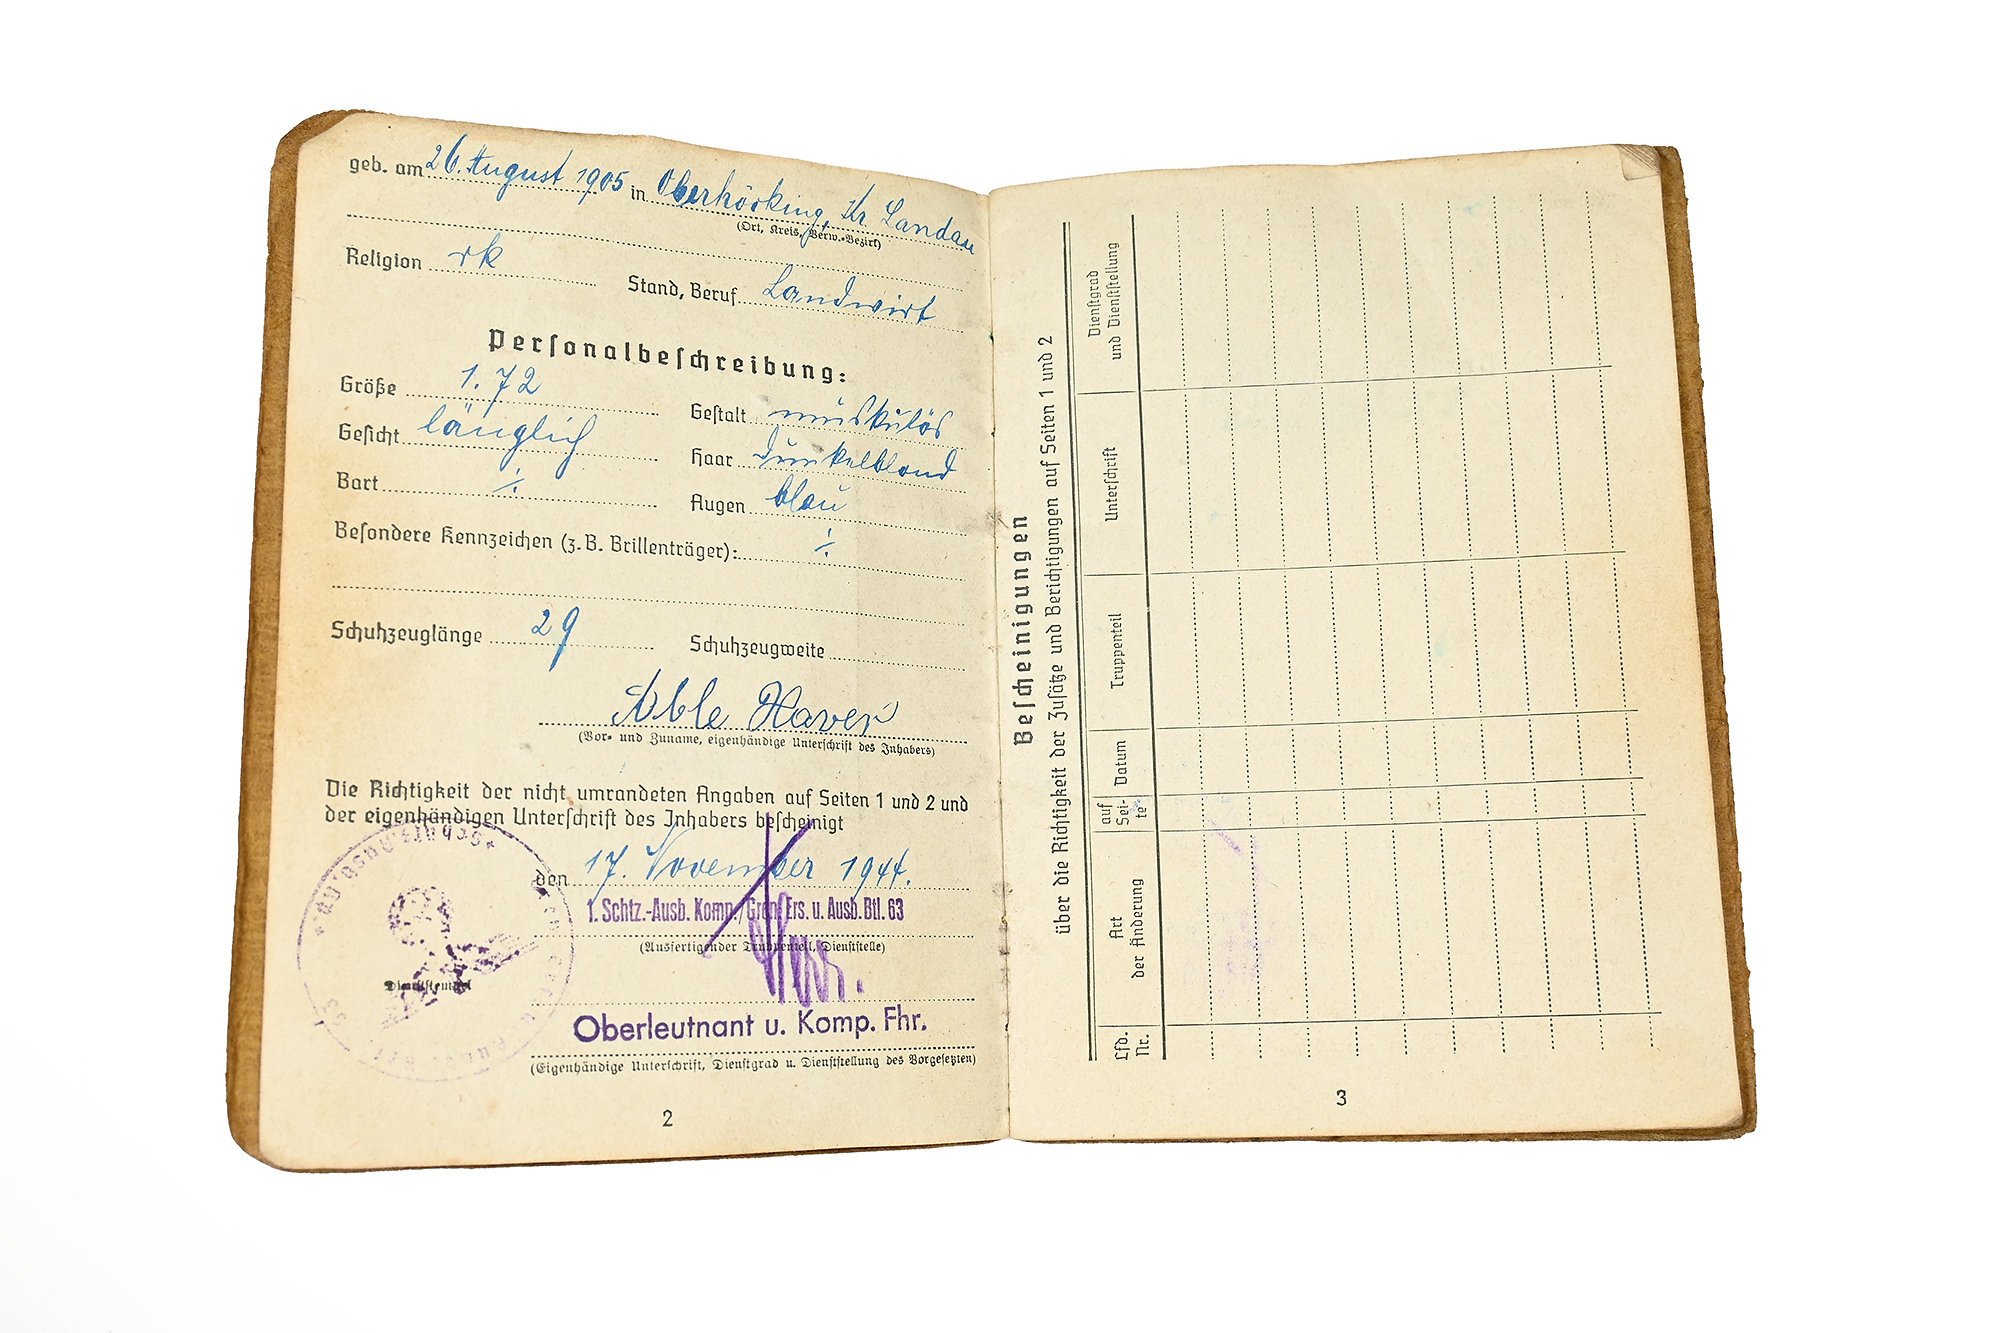 geb. am 26. August 1905 in Oberhöcking, Kr Landau
(Ort, Kreis, Verw.-Bezirk)
Religion rk Stand, Beruf Landwirt
Personalbeschreibung:
Größe 1.72 Gestalt muskulös
Gesicht länglich Haar dunkelblond
Bart ./. Augen blau
Besondere Kennzeichen (z. B. Brillenträger): ./.
Schuhzeuglänge 29 Schuhzeugweite
(Vor- und Zuname, eigenhändige Unterschrift des Inhabers)
Die Richtigkeit der nicht umrandeten Angaben auf Seiten 1 und 2 und
der eigenhändigen Unterschrift des Inhabers bescheinigt
den 17. November 1944.
1. Schtz.-Ausb. Komp./Gren. Ers. u. Ausb. Btl. 63
(Ausfertigender Truppenteil, Dienststelle)
Dienststempel
Oberleutnant u. Komp. Fhr.
(Eigenhändige Unterschrift, Dienstgrad u. Dienststellung des Vorgesetzten)
2
Bescheinigungen
über die Richtigkeit der Zusätze und Berichtigungen auf Seiten 1 und 2
Lfd. Nr.
Art der Änderung
auf Sei- te
Datum
Truppenteil
Unterschrift
Dienstgrad und Dienststellung
3